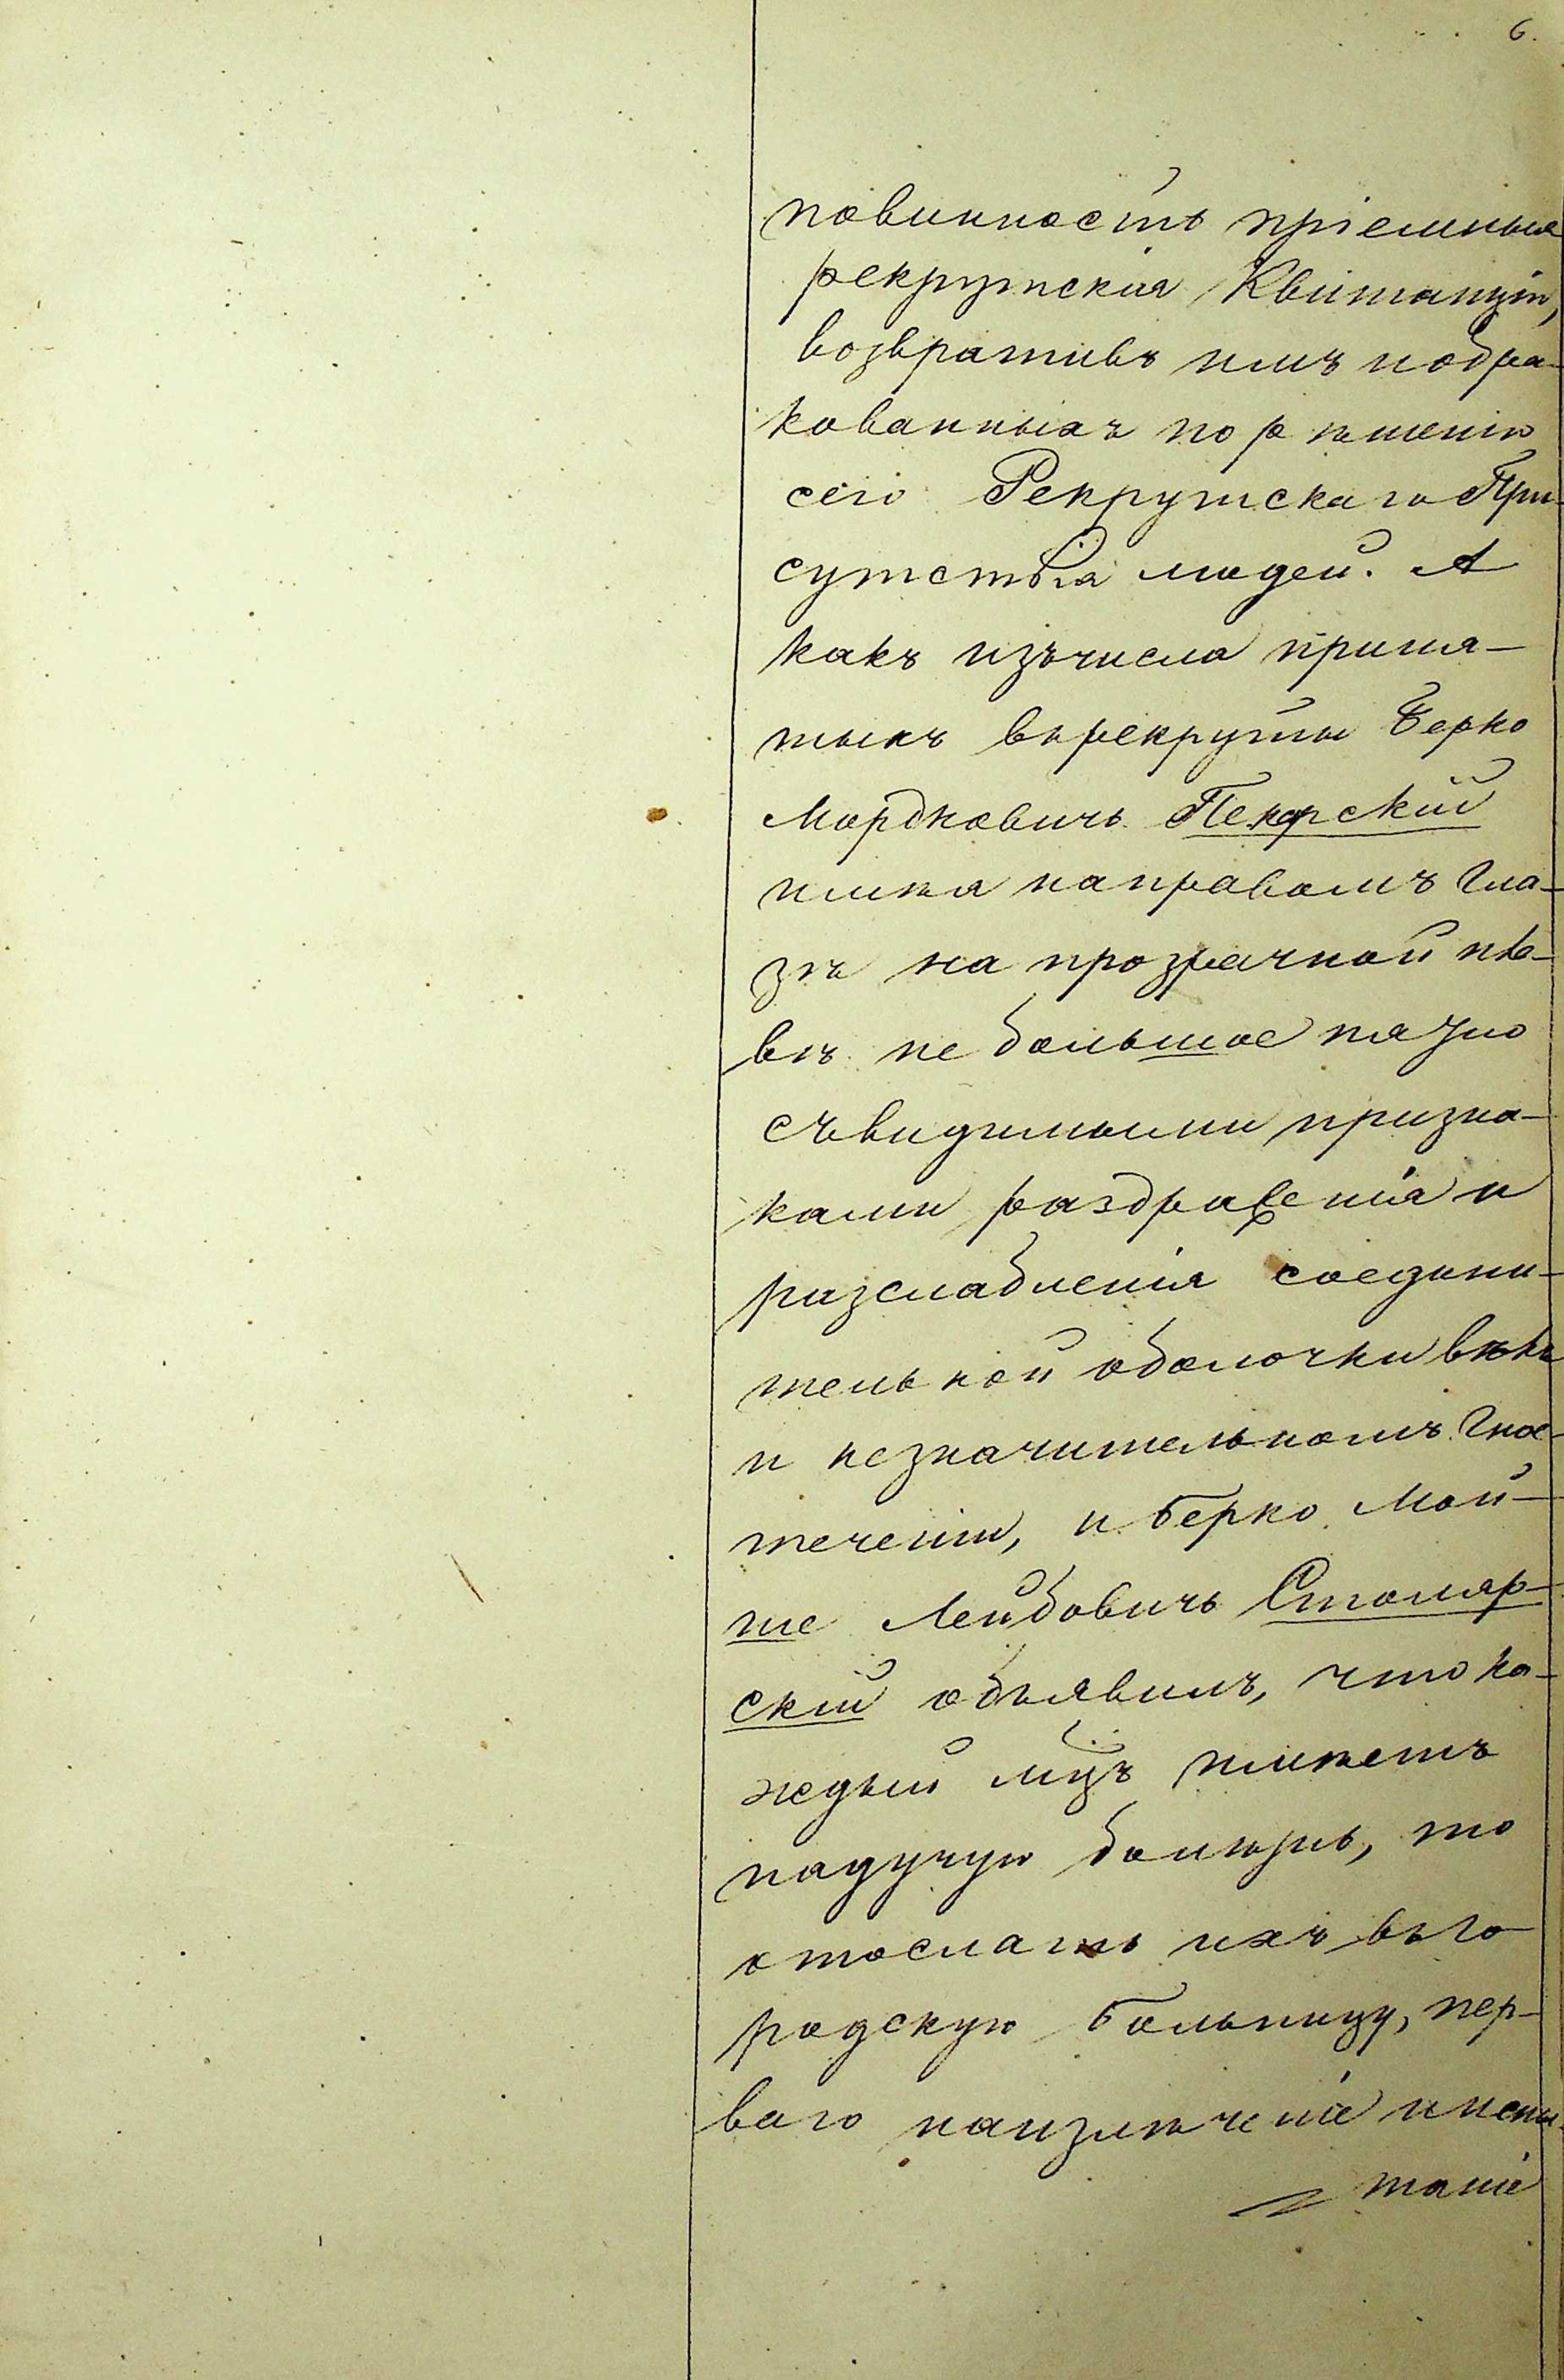 6.
повинность пріемныя
рекрутскія Квитанціи,
возвративъ имъ и обра-
кованныхъ по рѣшенію
сего Рекрутскаго При-
сутствія людей. А
какъ изъ числа приня-
тыхъ въ рекруты Берко
Мордковичъ Пекарский
имѣя на правомъ гла-
зѣ на прозрачной пле-
вѣ не большое пятно
съ видимыми призна-
ками раздраженія и
разслабленія соедини-
тельной оболочки вѣкъ
и незначительномъ гное-
теченіи, и Берко Мой-
ше Лейбовичъ Столяр-
скій объявилъ, что ка-
ждый мцъ имѣетъ
падучую болѣзнь, то
отослать ихъ въ го-
родскую больницу, пер-
ваго на излѣченіе и испы-
таніе